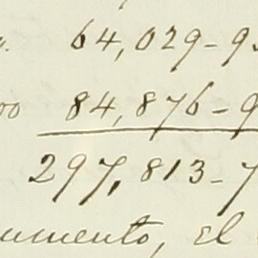 64,029-9
00 84,876-9
297,813-7
umento, el